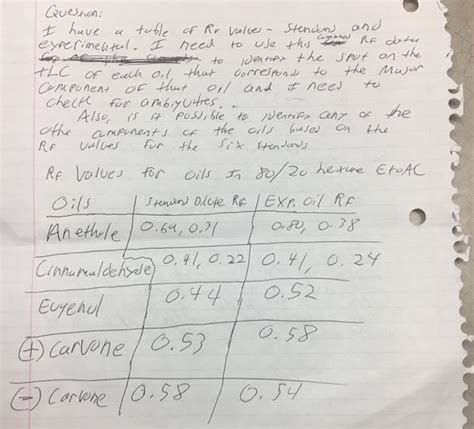 Question:
I have a table of Rf Values - Standard and
experimental. I need to use this Rf data
to identify the spot on the
TLC of each oil that corresponds to the Major
Component of that oil and I need to
check for ambiguities..
Also, is it possible to identify any of the
othe components of the oils based on the
Rf values for the six standards
Rf Values for oils in 80/20 hexane EtoAC
Oils | Standard Dilute Rf | Exp. Oil Rf
Anethole | 0.69, 0.71 | 0.80, 0.38
Cinnamaldehyde | 0.41, 0.22 | 0.41, 0.24
Eugenol | 0.44 | 0.52
(+) Carvone | 0.53 | 0.58
(-) Carvone | 0.58 | 0.54